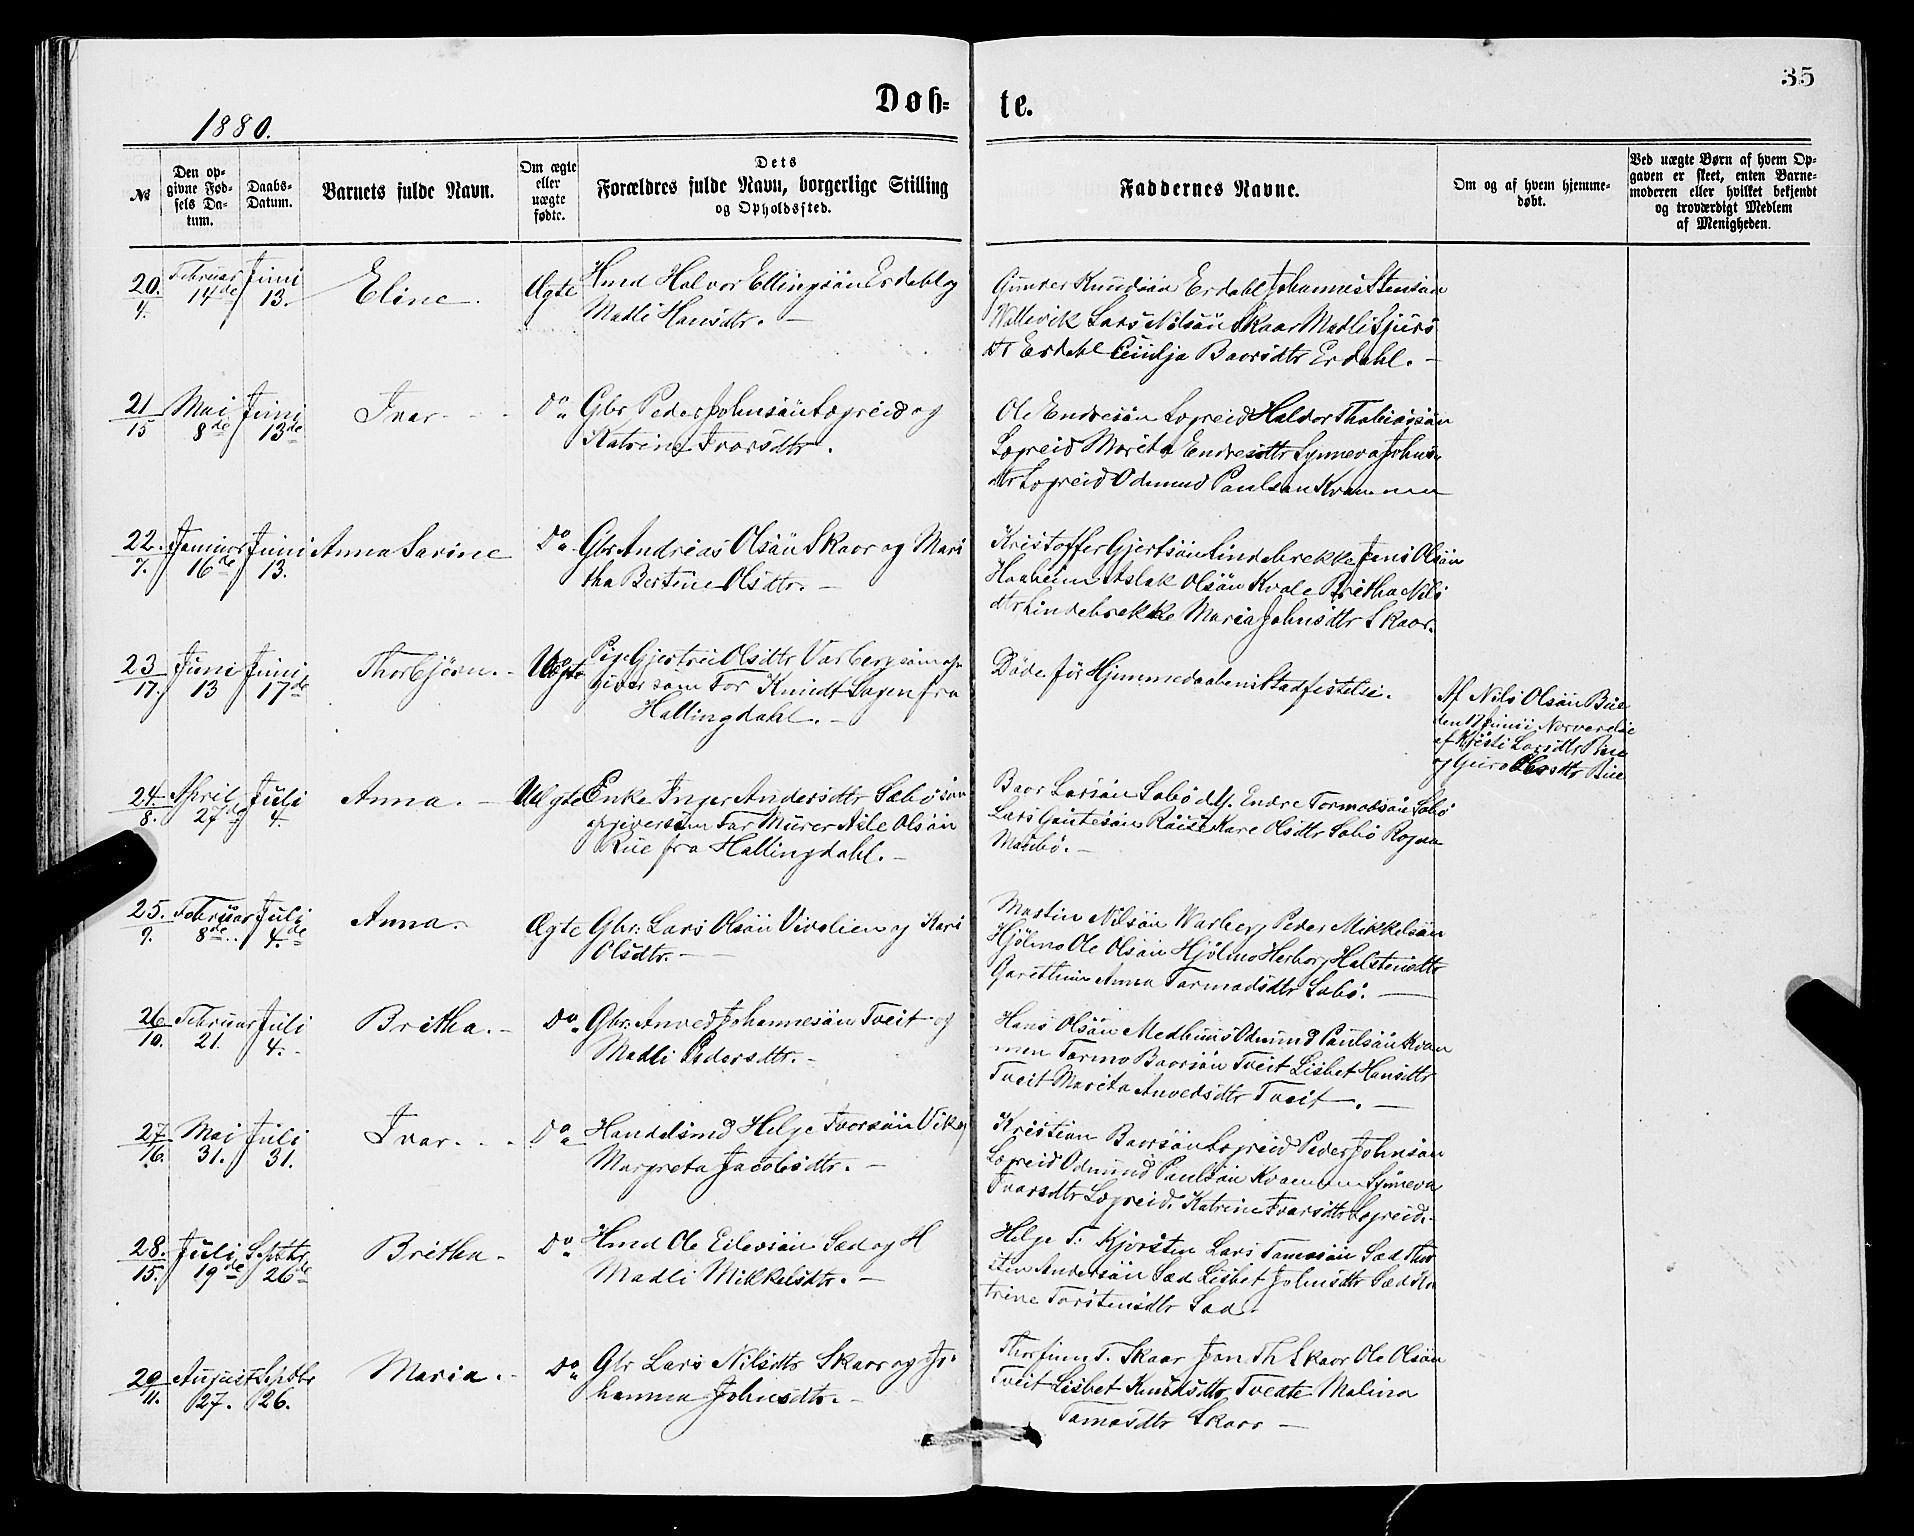 35
Døb= te.
1880.
№
Den op-
givne Fød-
sels Da-
tum.
Daabs-
Datum.
Barnets fulde Navn.
Om ægte
eller
uægte
fødte.
Dets
Forældres fulde Navn, borgerlige Stilling
og Opholdssted.
Faddernes Navne.
Om og af hvem hjemme-
døbt.
Ved uægte Børn af hvem Op-
gaven er skeet, enten Barne-
moderen eller hvilket bekjendt
og troværdigt Medlem
af Menigheden.
20. 4. Februar 14de Juni 13. Eline. Ægte
Hmd Halvor Ellingsön Erdahl og
Madli Hansdtr. —
Gunder Knudsön Erdahl Johannes Stensön
Wallevik Lars Nilsön Skaar Madli Sjurs
dtr Erdahl Cecilja Baorsdtr Erdahl. —
21 15 Mai 8de Juni 13de Ivar. Do
Gbr Peder Johnsön Legreid og
Katrine Ivarsdtr.
Ole Endresön Legreid Haldor Thobiassön
Legreid Marita Endresdtr Synneva Johns
dtr Legreid Odmund Paulsen Kvammen
22. 7. Januar 16de Juni 13. Anna Sarine Do
Gbr Andreas Olsön Skaar og Mari
tha Bertine Olsdtr. —
Kristoffer Gjertsön Lindebrekke Jens Olsön
Haaheim Aslak Olsön Kvale Britha Nils
dtr Lindebrekke Maria Johnsdtr Skaar.
23 17. Juni 13 Juni 17de Thorbjörn. Uægte
Pige Gjertrü Olsdtr Varberg som op
giver som Far Knudt Lagen fra
Hallingdahl. —
Döde för Hjemmedaabens Stadfestelse.
Af Nils Olsön Büe
den 17 Junii Nærværelse
af Kristi Larsdtr Büe
og Guro Olsdtr Büe
24. 8. April 27de Juli 4. Anna. — Uægte
Enke Inger Andersdtr Sæbö som
opgiver som Far Murer Nils Olsön
Rüe fra Hallingdahl. —
Baor Larsön Sæbö Endre Tormodsön Sæbö
Lars Gautesön Røise Kare Olsdtr Sæbö
Mæubö. —
25. 9. Februar 8de Juli 4de Anna. Ægte
Gbr. Lars Olsön Vivelien og Kari
Olsdtr. —
Martin Nilsön Warberg Peder Mikkelsön
Hjölmo Ole Olsön Hjölmo Herborg Halstensdtr
Garethun Anna Tormodsdtr Sæbö. —
26 10. Februar 21. Juli 4. Britha. — Do
Gbr. Anved Johannesön Tveit og
Madli Pedersdtr. —
Hans Olsön Medhuus Odmund Paulsön Kvam
men Tormo Baorsön Tveit Lisbet Hansdtr
Tveit Marita Anvedsdtr Tveit. —
27 16. Mai 31. Juli 31. Ivar. Do
Handelsmd Helge Ivarsön Vik og
Margreta Jacobsdtr. —
Kristian Baorsön Legreid Peder Johnsön
Legreid Odmund Paulsön Kvammen Synneva
Ivarsdtr Legreid. Katrine Ivarsdtr Legreid. —
28. 15. Juli 19de Septbr. 26de Britha — Do
Hmd Ole Eilevsön Sæd og H
Madli Mikkelsdtr. —
Helge T. Kjærsten Lars Tomasön Sæd Thor
sten Andersön Sæd Lisbet Johnsdtr Sæd Ka
trine Torstensdtr Sæd.
29 11. August 27. Septbr 26. Maria. — Do
Gbr Lars Nilsdtr Skaar og Jo
hanna Johnsdtr. —
Thorfinn T. Skaar Jon Th Skaar Ole Olsön
Tveit Lisbet Knudsdtr Tvedte Malina
Tomasdtr Skaar —